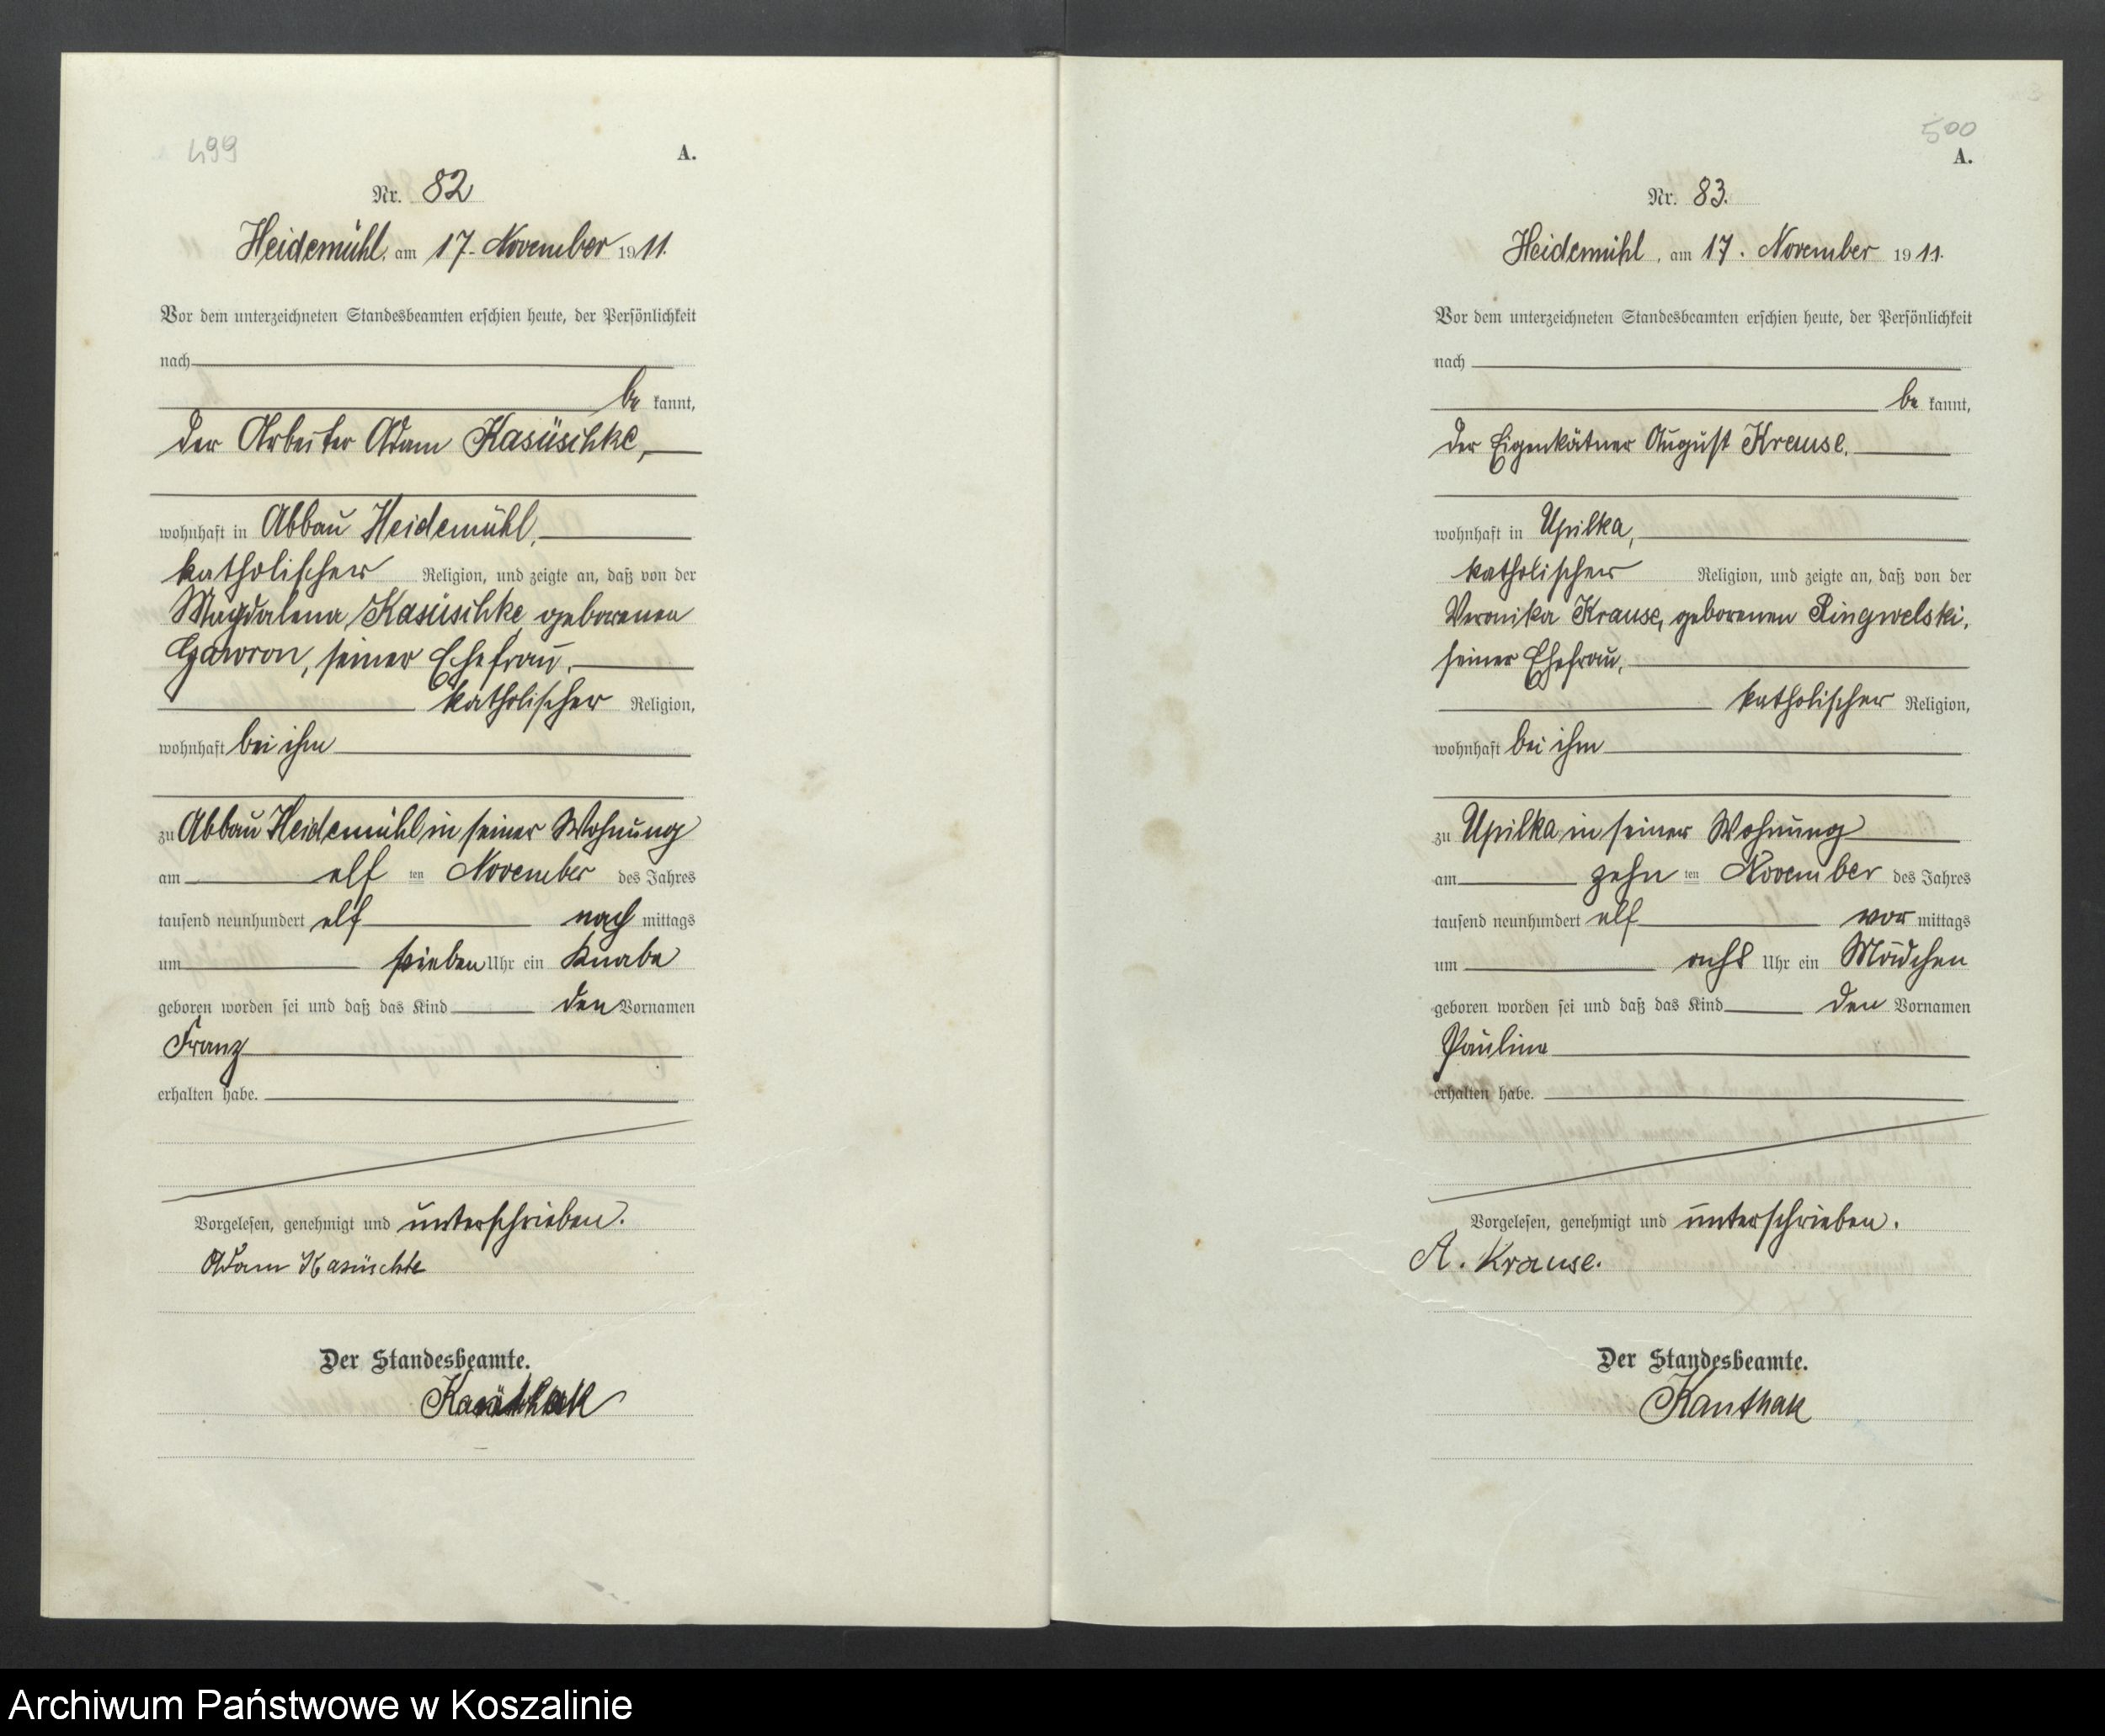 499
A.
Nr. 82
Heidemühl, am 17. November 1911.
Vor dem unterzeichneten Standesbeamten erschien heute, der Persönlichkeit
nach
be kannt,
der Arbeiter Adam Kasüschke,
wohnhaft in Abbau Heidemühl,
katholischer Religion, und zeigte an, daß von der
Magdalena Kasüschke geborenen
Gawron, seiner Ehefrau,
katholischer Religion,
wohnhaft bei ihm
zu Abbau Heidemühl in seiner Wohnung
am elf ten November des Jahres
tausend neunhundert elf nach mittags
um sieben Uhr ein Knabe
geboren worden sei und daß das Kind den Vornamen
Franz
erhalten habe.
Vorgelesen, genehmigt und unterschrieben.
Adam Kasüschke
Der Standesbeamte.
Kanthak
500
A.
Nr. 83.
Heidemühl, am 17. November 1911.
Vor dem unterzeichneten Standesbeamten erschien heute, der Persönlichkeit
nach
be kannt,
der Eigenkätner August Krause,
wohnhaft in Upilka,
katholischer Religion, und zeigte an, daß von der
Veronika Krause, geborenen Ringwelski,
seiner Ehefrau,
katholischer Religion,
wohnhaft bei ihm
zu Upilka in seiner Wohnung
am zehn ten November des Jahres
tausend neunhundert elf vor mittags
um acht Uhr ein Mädchen
geboren worden sei und daß das Kind den Vornamen
Paulina
erhalten habe.
Vorgelesen, genehmigt und unterschrieben.
A. Krause.
Der Standesbeamte.
Kanthak
Archiwum Państwowe w Koszalinie